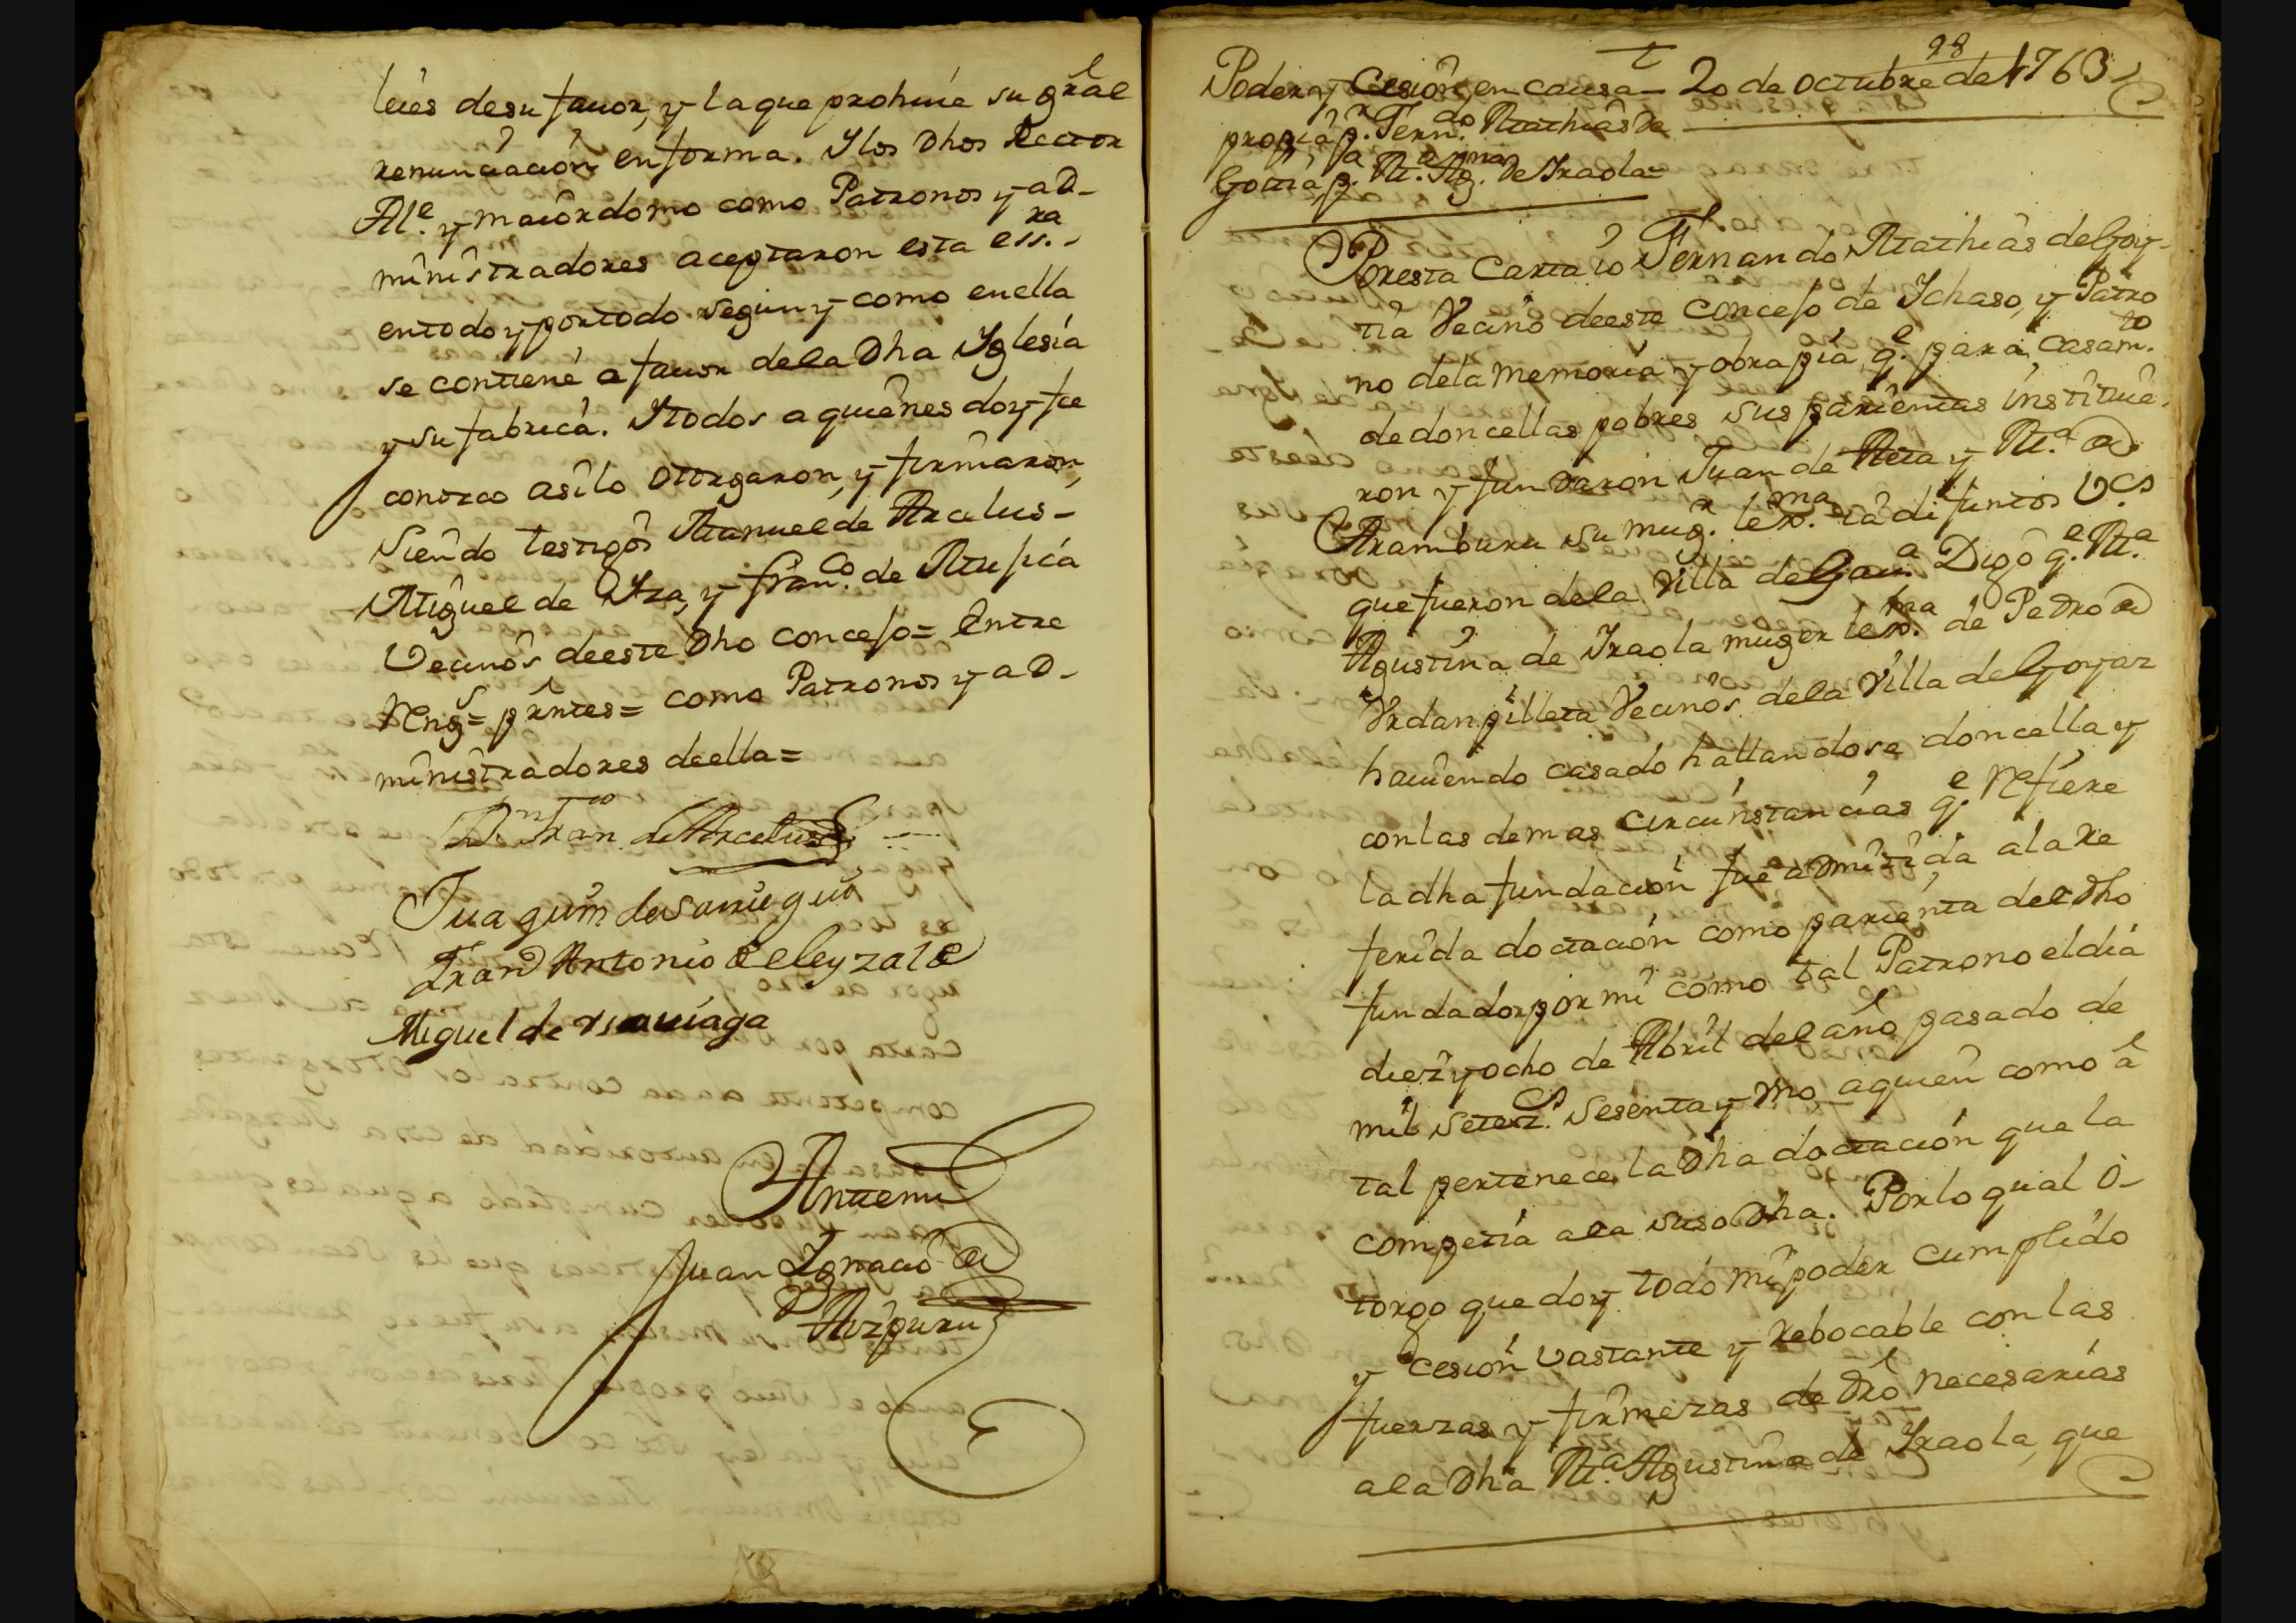 leies desu fauor, y la que prohiue su gral
renunciacion en forma. Y los Dhos Rector
Ale. y maiordomo como Patronos y aD-
ministradores aceptaron esta essra.
entodo y portodo segun y como enella
se contiene a fauor dela Dha Yglesia
y su fabrica. Ytodos a quienes doy fee
conozco asilo otorgaron, y firmaron,
siendo testigos Manuel de Arcelus-
Miguel de Yza, y Franco. de Mujica
Vecinos deeste Dho concejo= Entre
Rengs= prntes= como Patronos y aD-
ministradores deella=
Dn Fran co de Arcelus
Juaquin de Sarriegui
Fran Antonio de leyzalde
Miguel de
Antemi
Juan Ygnacio de
Aizpuru
98
Poder y Cesion, en causa- 20 de octubre de 1763
propia pr. Ferndo. Mathias de
Goitia, pa. Ma. Agna. de Yraola=
Poresta Carta io Fernando Mathias de Goy-
tia Vecino deeste concejo de Ychaso, y Patro
no dela memoria y obra pia, qe. para casamto.
de doncellas pobres sus parientas instituie-
ron y fundaron Juan de Meta y Ma. de
Aramburu su mugr. lexma. ia difuntos Vcs
que fueron dela Villa de Gaua. Digo qe. Ma.
Agustina de Yraola muger lexma. de Pedro de
Vrdanpilleta Vecinos dela Villa de Goyaz
hauiendo casado hallandose doncella y
conlas demas circunstancias qe. Refiere
la dha fundacion fue admitida ala Re
ferida dotacion como parienta del Dho
fundador por mi como tal Patrono el dia
diez y ocho de Abril del año pasado de
mil setezs. sesenta y vno aquien como a
tal pertenece la Dha dotacion que la
competia ala suso Dha. Porlo qual o-
torgo que doy todo mi poder cumplido
y cesion vastante y rebocable con las
fuerzas y firmezas de Dro necesarias
ala Dha Ma. Agustina de Yraola, que